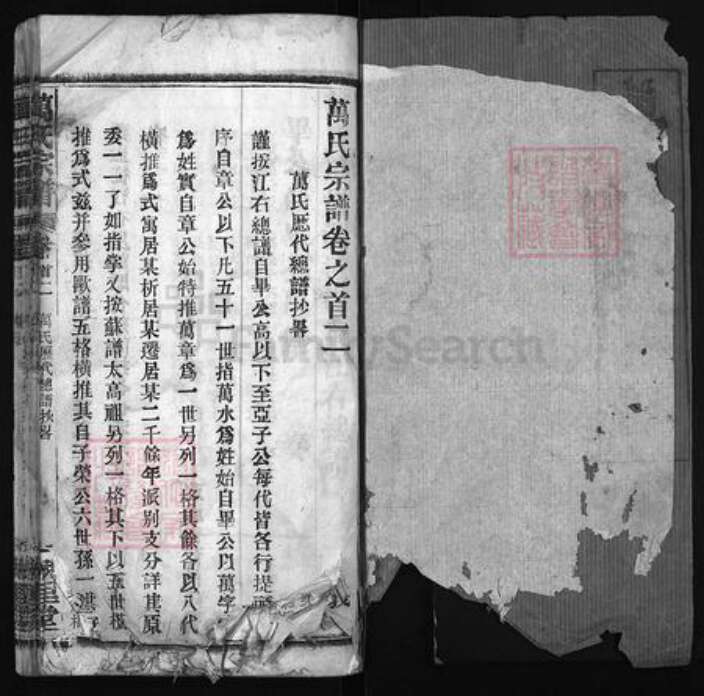 萬氏宗譜卷之首二
萬氏歷代總譜抄畧
謹按江右總譜自畢公高以下至亞子公每代皆各行提
序自章公以下凡五十一世指萬水爲姓始自畢公以萬字
爲姓實自章公始特推萬章爲一世另列一格其餘各以八代
橫推爲式寓居某析居某遷居某二千餘年派別支分詳其原
委一一了如指掌又按蘇譜太高祖另列一格其下以五世橫
推爲式茲并參用歐譜五格橫推其自子榮公六世孫一
萬氏宗譜 卷首二 萬氏歷代總譜抄畧
FamilySearch